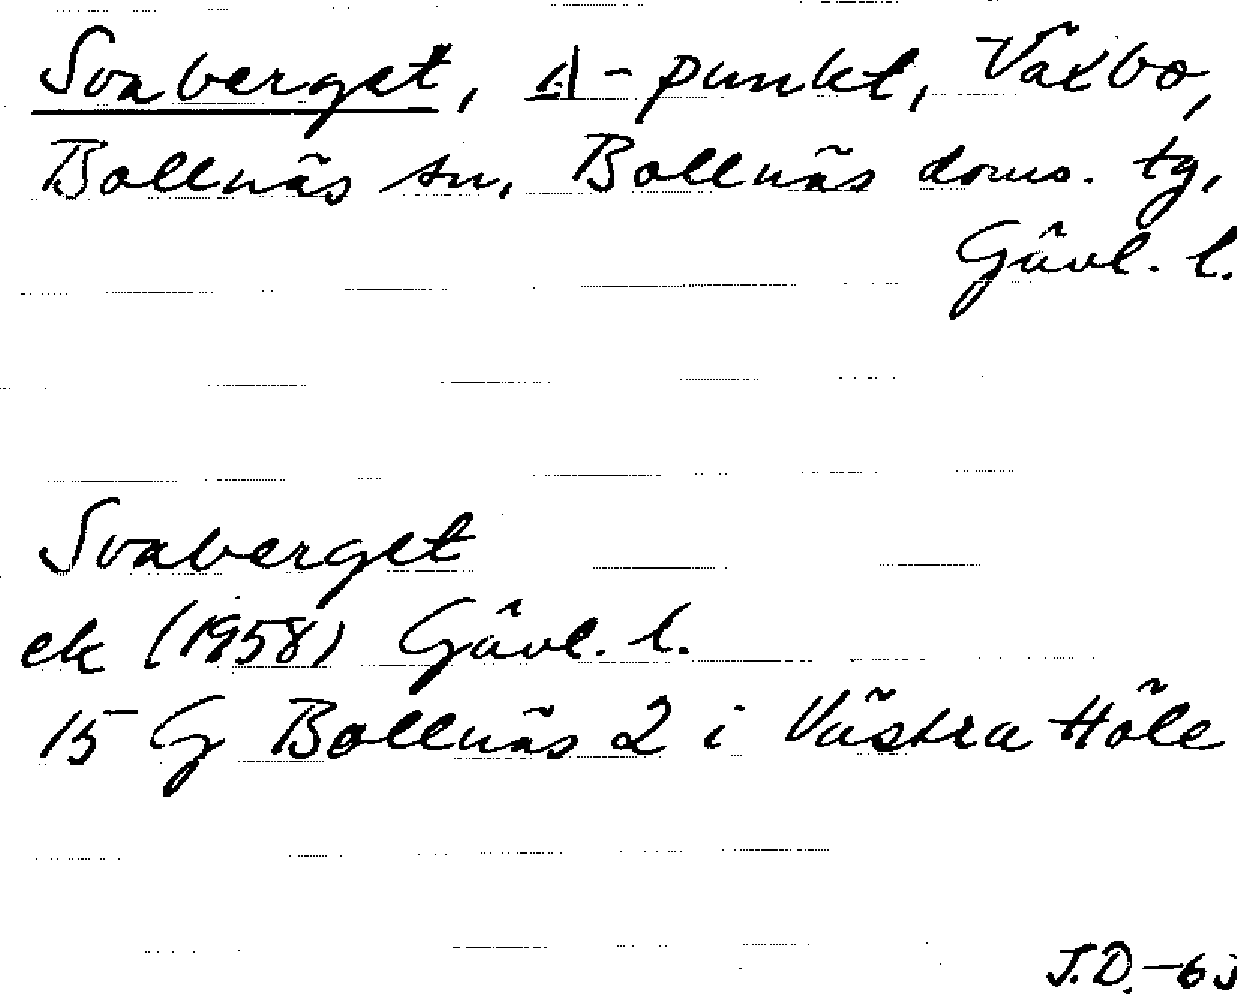 Svaberget, Δ-punkt, Växbo,
Bollnäs sn, Bollnäs doms. tg,
Gävl. l.
Svaberget
ek (1958) Gävl. l.
15 G Bollnäs 2 i Västra Höle
J.D.-63